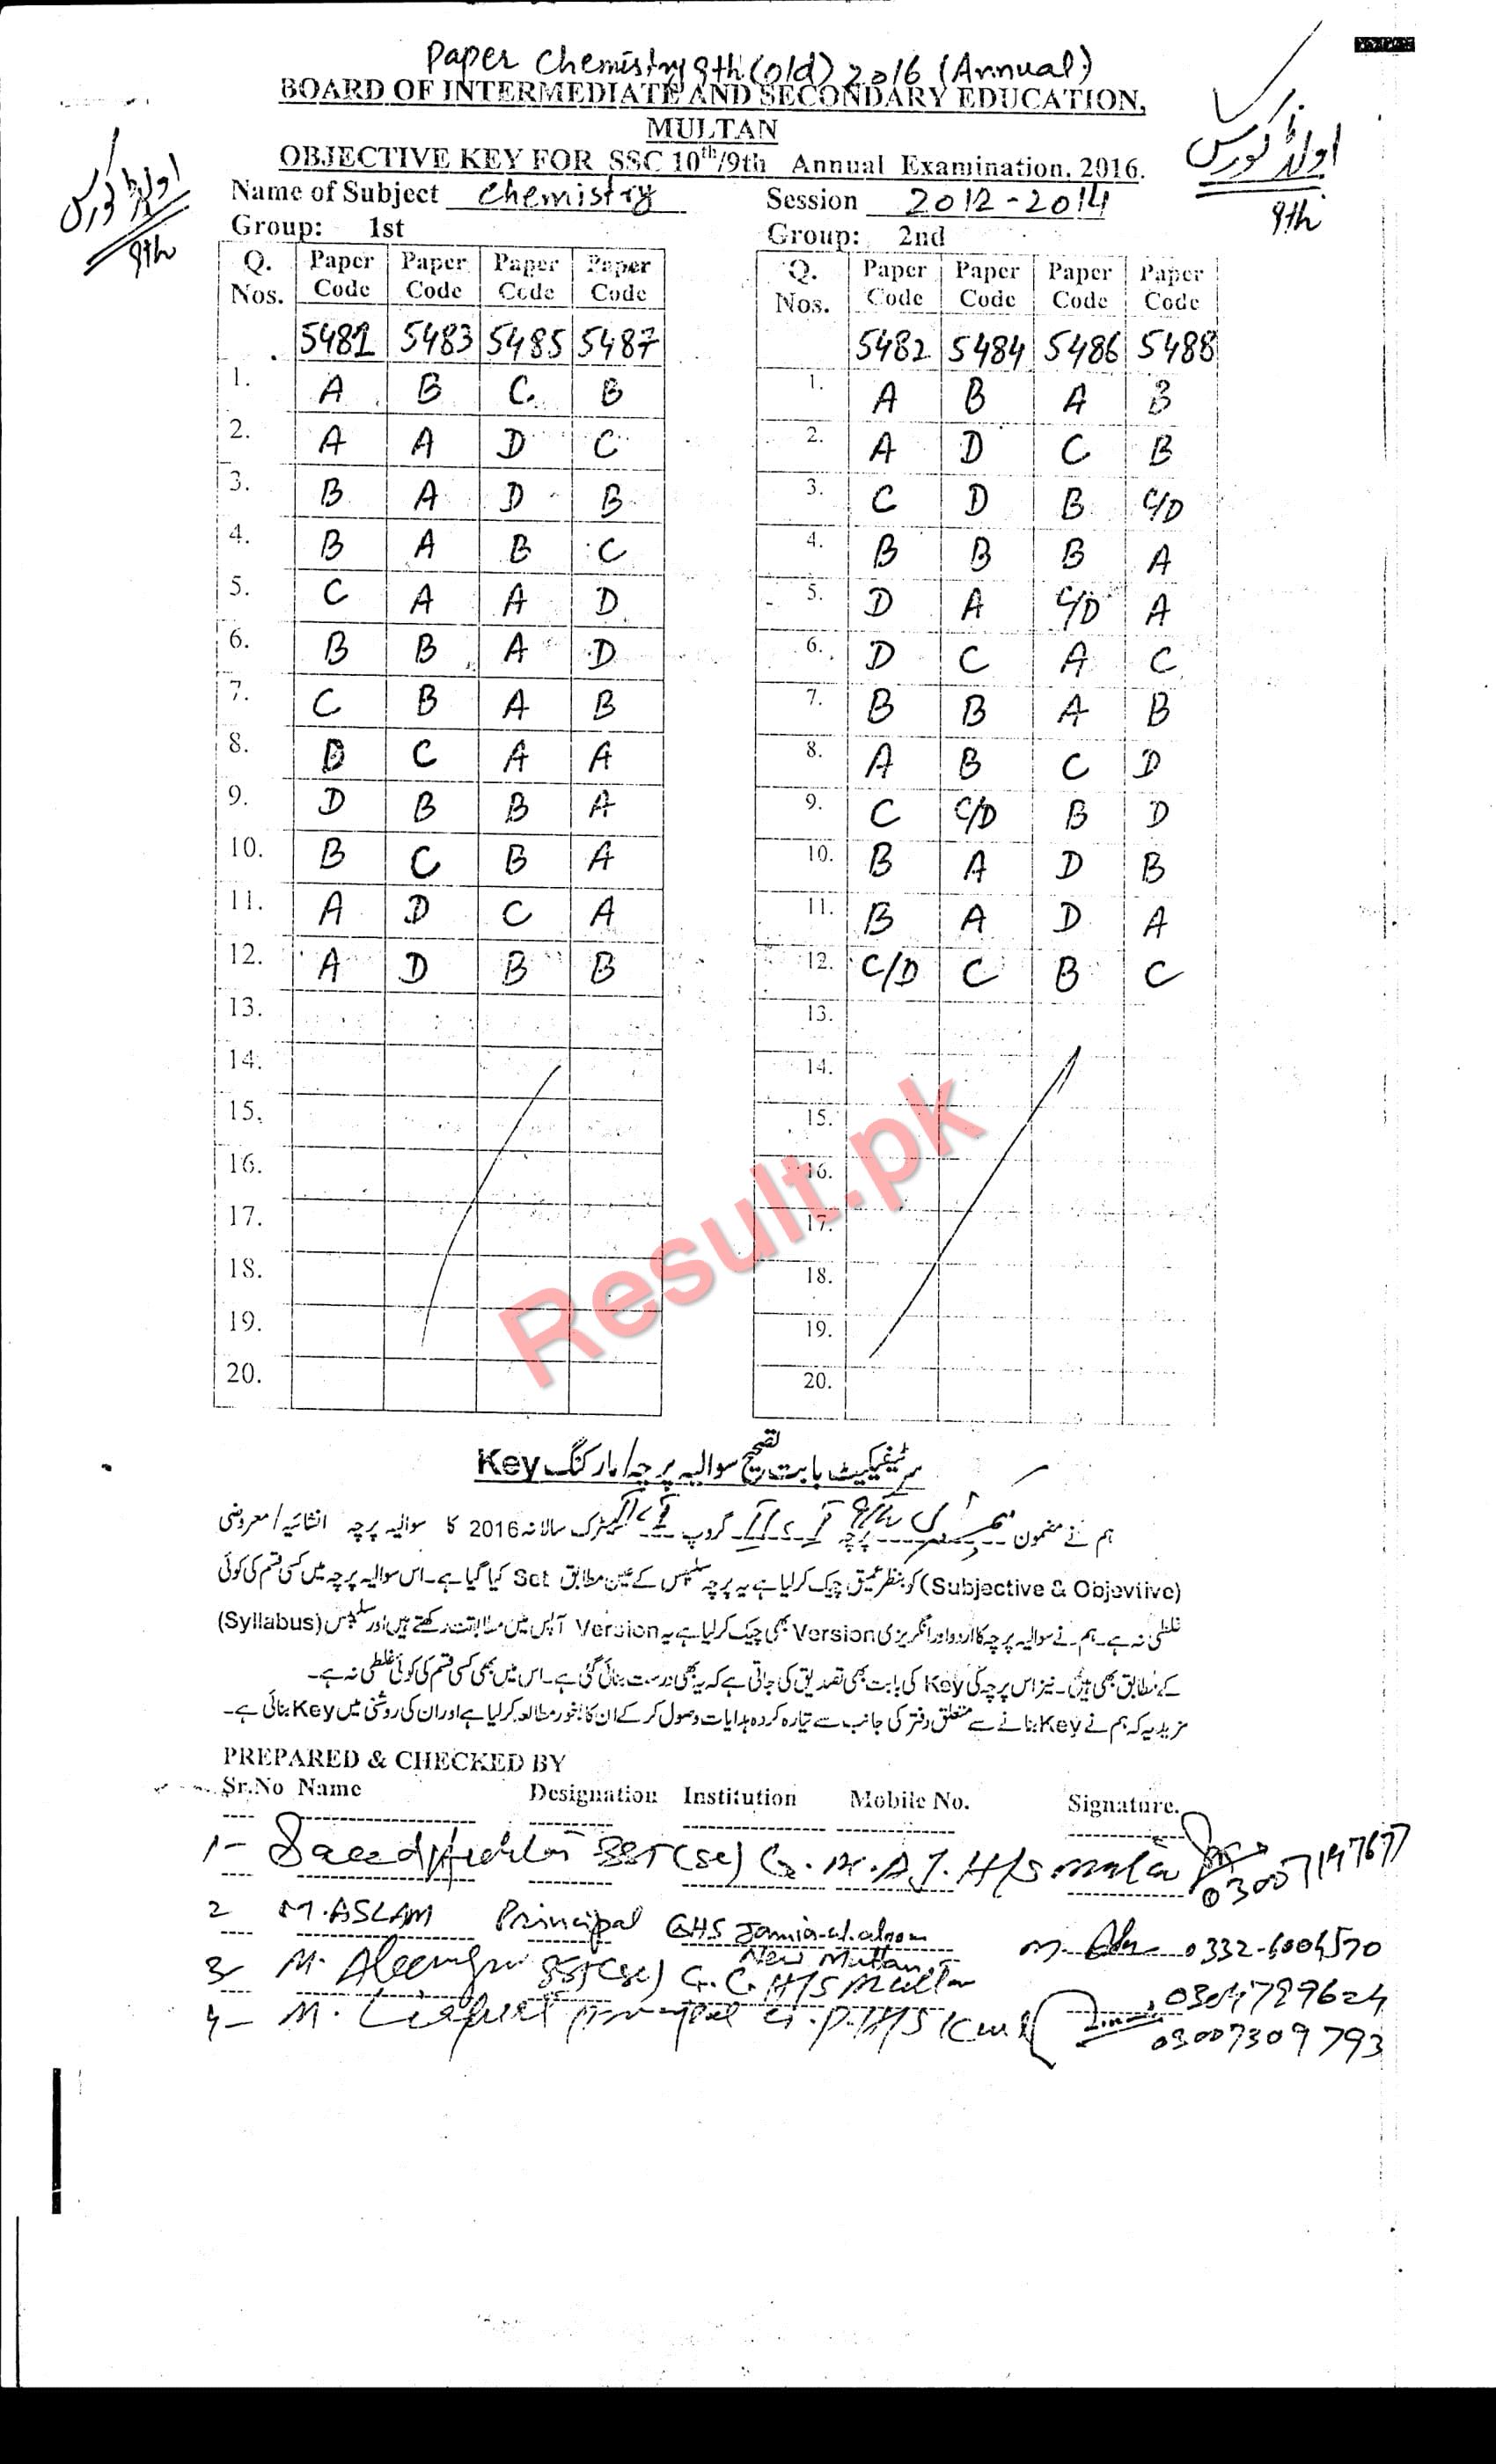 Paper Chemistry 9th (old) 2016 (Annual)
BOARD OF INTERMEDIATE AND SECONDARY EDUCATION,
MULTAN
OBJECTIVE KEY FOR SSC 10th/9th Annual Examination. 2016.
اولڈ کورس
9th
اولڈ کورس
9th
Name of Subject Chemistry Session 2012-2014
Group: 1st Group: 2nd
Q. Nos. Paper Code Paper Code Paper Code Paper Code Q. Nos. Paper Code Paper Code Paper Code Paper Code
5481 5483 5485 5487 5482 5484 5486 5488
1. A B C. B 1. A B A B
2. A A D C 2. A D C B
3. B A D B 3. C D B C/D
4. B A B C 4. B B B A
5. C A A D 5. D A C/D A
6. B B A D 6. D C A C
7. C B A B 7. B B A B
8. D C A A 8. A B C D
9. D B B A 9. C C/D B D
10. B C B A 10. B A D B
11. A D C A 11. B A D A
12. A D B B 12. C/D C B C
13. 13.
14. 14.
15. 15.
16. 16.
17. 17.
18. 18.
19. 19.
20. 20.
Result.pk
سرٹیفکیٹ بابت تصحیح سوالیہ پرچہ/مارکنگ Key
ہم نے مضمون کیمسٹری پرچہ گروپ میٹرک سالانہ 2016 کا سوالیہ پرچہ انشائیہ/معروضی
(Subjective & Objevtive) کو بنظر عمیق چیک کر لیا ہے یہ پرچہ سلیبس کے عین مطابق Set کیا گیا ہے۔ اس سوالیہ پرچہ میں کسی قسم کی کوئی
غلطی نہ ہے۔ ہم نے سوالیہ پرچہ کا اردو اور انگریزی Version بھی چیک کر لیا ہے یہ Version آپس میں مطابقت رکھتے ہیں اور سلیبس (Syllabus)
کے مطابق بھی ہیں۔ نیز اس پرچہ کی Key کی بابت بھی تصدیق کی جاتی ہے کہ یہ بھی درست بنائی گئی ہے۔ اس میں بھی کسی قسم کی کوئی غلطی نہ ہے۔
مزید یہ کہ ہم نے Key بنانے سے متعلق دفتر کی جانب سے تیار کردہ ہدایات وصول کر کے ان کا بخور مطالعہ کر لیا ہے اور ان کی روشنی میں Key بنائی ہے۔
PREPARED & CHECKED BY
Sr.No Name Designation Institution Mobile No. Signature.
1- Saeed SST(sc) 03007147677
2 M.ASLAM Principal GHS New Multan 0332-6004570
3- M. SST(sc) G.C.H/S Multan 03047899624
4- M. Principal 03007309793